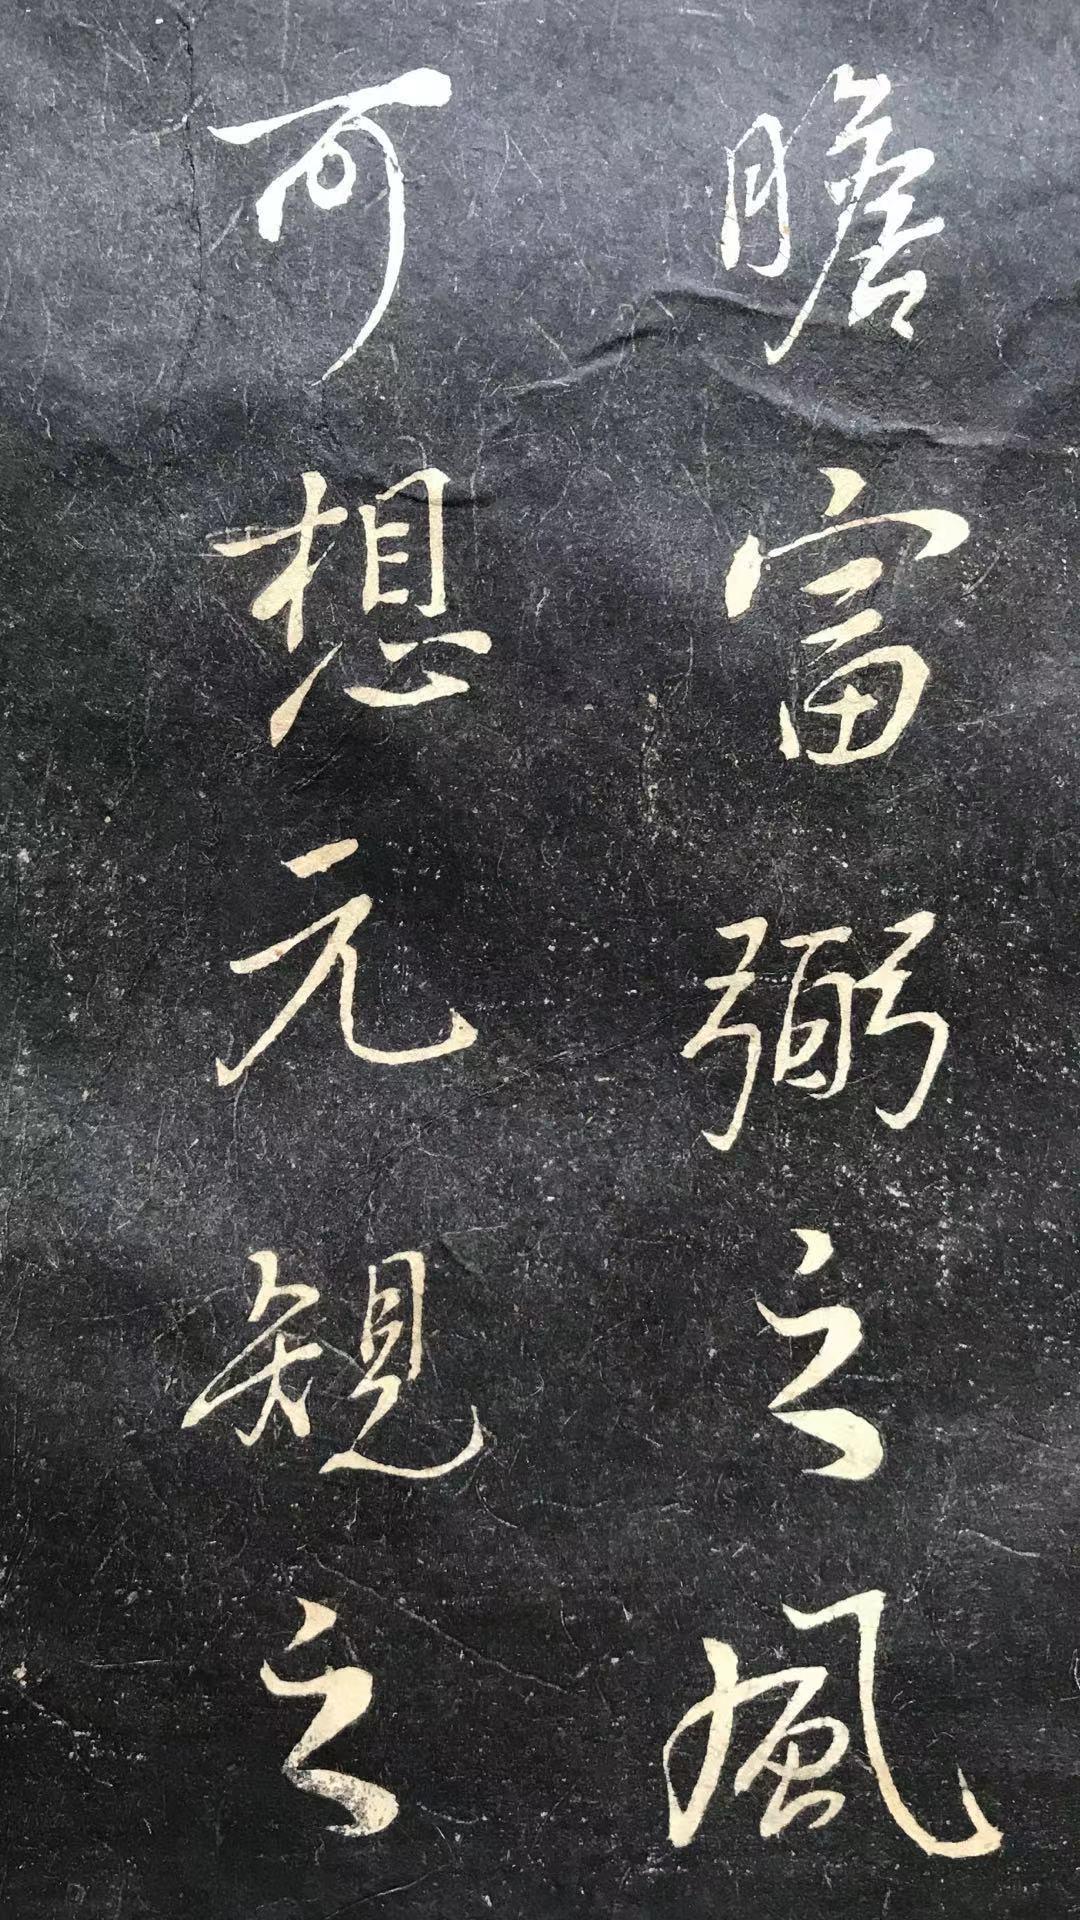 瞻富弼之風
可想元規之